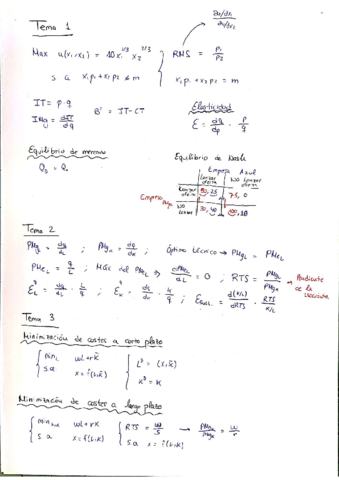 Tema 1
∂u/∂x₁
∂u/∂x₂
Max u(x₁,x₂) = 40x₁^1/3 x₂^2/3
RMS = p₁/p₂
s a x₁p₁ + x₂p₂ ≤ m
x₁p₁ + x₂p₂ = m
IT = p·q
B° = IT - CT
IMg = dIT/dq
Elasticidad
ε = dq/dp · p/q
Equilibrio de mercado
Q_D = Q_o
Equilibrio de Nash
Empresa Azul
Lanzar oferta
NO lanzar oferta
Empresa Roja
Lanzar oferta
75, 0
NO Lanzar
Tema 2
PMg_L = dq/dL ; PMg_K = dq/dK ; Óptimo técnico → PMg_L = PMe_L
PMe_L = q/L ; Máx del PMe_L ⇒ dPMe_L/dL = 0 ; RTS = PMg_L/PMg_K → Pendiente de la isocuanta
ε_L^q = dq/dL · L/q ; ε_K^q = dq/dK · K/q ; d(K/L)/dRTS · RTS/K/L
Tema 3
Minimización de costes a corto plazo
min_L wL + rK̄
s.a x = f(L, K̄)
L^D = (x, K̄)
K^D = K
Minimización de costes a largo plazo
min_L,K wL + rK
s.a x = f(L, K)
RTS = w/r → PMg_L/PMg_K = w/r
s.a x = f(L, K)